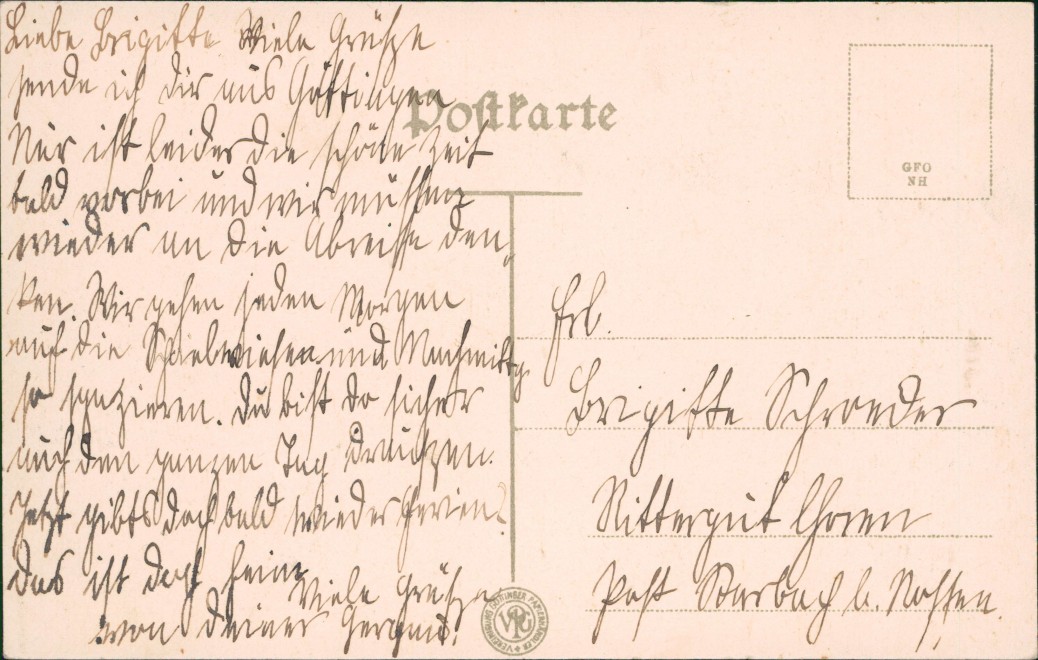 Liebe Brigitte Viele Grüße
sende ich dir aus Göttingen
Nur ist leider die schöne Zeit
bald vorbei und wir müssen
wieder an die Abreise den„
ken. Wir gehen jeden Morgen
auf die Spielwiesen und Nachmittg.
so spazieren. Du bist do sicher
auch den ganzen Tag draußen.
Jetzt gibts doch bald wieder Ferien.
Das ist doch fein
Viele Grüße
von deiner
Postkarte
GFO
NH
Frl.
Brigitte Schroeder
Rittergut Choren
Post Starbach b. Nossen.
VEREINIGUNG GÖTTINGER PAPIERHÄNDLER
VPG